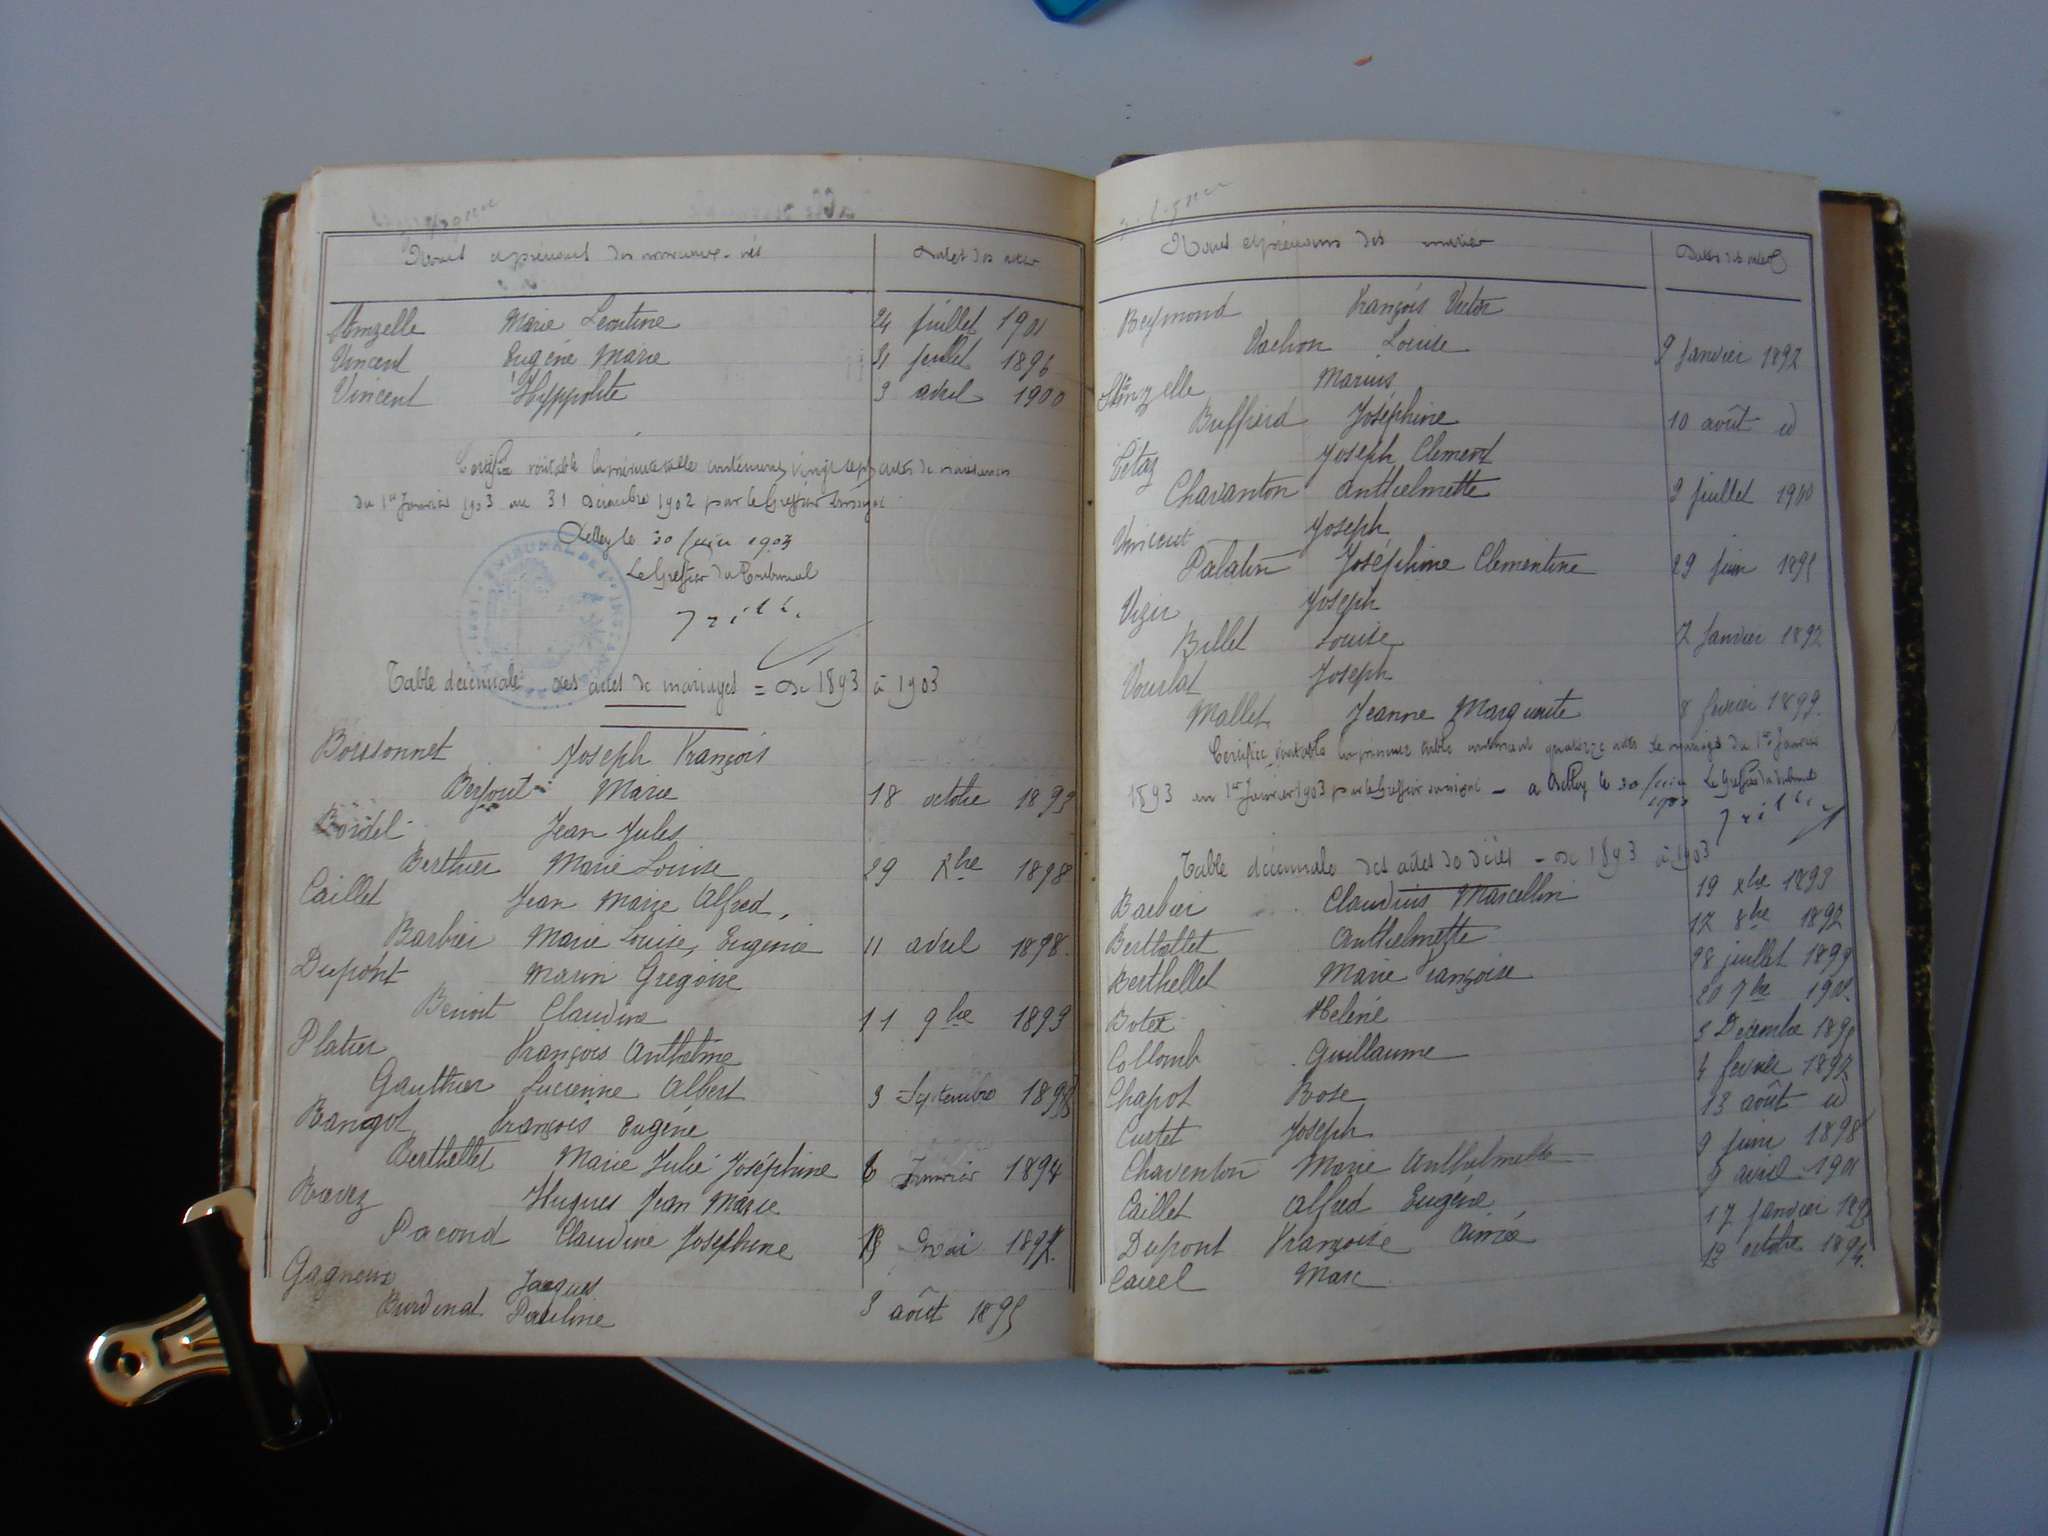 Noms et prénoms des nouveaux-nés Dates des actes
Marie Leontine 24 juillet 1901
Vincent Eugéne Marie 31 juillet 1896
Vincent Hyppolite 3 avril 1900
Certifié véritable la présente table contenant vingt sept actes de naissances
du 1er Janvier 1903 au 31 Décembre 1902 par le Greffier soussigné
Belley le 30 Juin 1903
Le Greffier du Tribunal
Table décennale des actes de mariages = de 1893 à 1903
Boissonnet Joseph François
Marie 18 octobre 1893
Bordel Jean Jules
Berthier Marie Louise 29 Xbre 1898
Caillet Jean Marie Alfred
Barbier Marie Louise, Eugenie 11 avril 1898.
Dupont Marin Gregoire
Benoit Claudine 11 9bre 1893
Platier François Anthelme
Gauthier Lucienne Albert 3 Septembre 1898
Rangot François Eugéne
Berthellet Marie Julie Joséphine 6 Janvier 1894
Ravez Hugues Jean Marie
Pacond Claudine Josephine Mai 1897.
Gagneux Jacques
Burdinat Pauline 3 août 1895
Noms et prénoms des mariés Dates des actes
Reymond François Victor
Vachon Louise 9 Janvier 1892
Marius
Buffierd Joséphine 10 août id
Tétaz Joseph Clement
Chavanton Anthelmette 9 juillet 1900
Vincent Joseph
Palatin Joséphine Clementine 29 juin 1895
Vizir Joseph
Billet Louise 7 Janvier 1892
Vourlat Joseph
Mallet Jeanne Marguerite 8 février 1899.
Certifiée véritable la présente table contenant quatorze actes de mariages du 1er Janvier
1893 au 1er Janvier 1903 par le Greffier soussigné - à Belley le 30 Juin 1903 Le Greffier du Tribunal
Table décennale des actes de décès - de 1893 à 1903
Barbier Claudius Marcellin 19 Xbre 1893
Berthellet Anthelmette 17 8bre 1892
Berthellet Marie Françoise 28 juillet 1899
Botex Heléne 20 7bre
Collomb Guillaume 3 Decembre 1895
Chapot Rose 4 fevrier 1892
Curtet Joseph 13 août id
Chaventon Marie Anthelmette 9 Juin 1898
Caillet Alfred Eugéne 9 avril 1901
Dupont Françoise Aimée 17 Janvier 1892
Cairel Marc 13 octobre 1894.